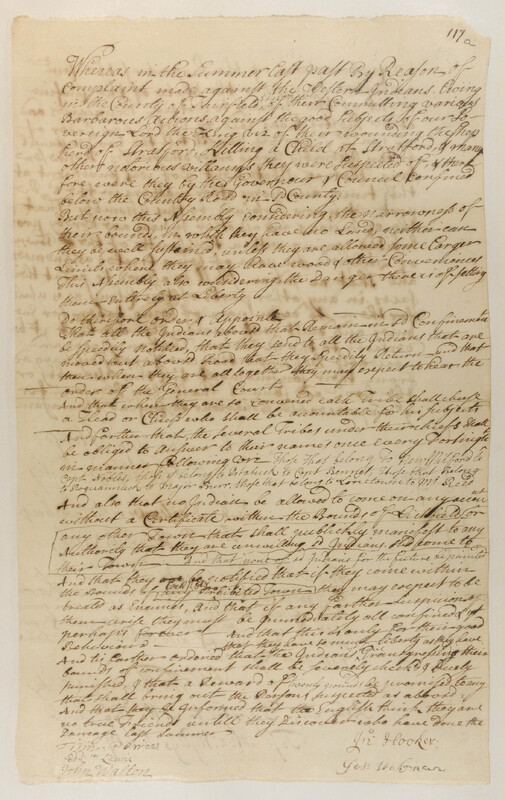 117
a
Whereas in the Summer last past By Reason of
Complaint made against the Indians living
in the County of Fairfield, of their Committing various
Barbarous Actions against the good Subjects of our So-
vereign Lord the King viz of their wounding the Shep
herd of Stratford, Killing a Child at Stratford & many
other notorious they were Suspected of & there
fore were they by the Governour & Council Confined
below the Country Road in sd County.
But now this Assembly considering the Narrowness of
their bounds in which they have no Land, neither can
they be well Sustained, unless they are allowed some Larger
Limits where they may have wood & other Conveniences
This Assembly also considering the Danger there is of setting
them intirely at Liberty
Do therefore order & Appoint
That all the Indians above that Remain in sd Confinement
be speedily notified, that they send to all the Indians that are
moved out abovesd that they speedily Return and that
then when they are all together they may expect to hear the
order of the General Court
And that when they are so convened each Tribe shall chuse
a Head or Chief who shall be accountable for his subjects
And farther that the several Tribes under their chiefs shall
be obliged to Answer to their names once every Fortnight
in manner following viz Those that belong to
Capt Nobles, those to Capt Bennet, those that belong
to Major Burr, those that belong to to Mr Read
And also that no Indian be allowed to come on any acct
without a Certificate within the Bounds of Litchfield or
any other Town that shall publickly manifest to any
Authority that they are unwilling sd Indians should come to
their Town
And that they be notified that if they come within
the bounds of any Prohibited Town they may expect to be
treated as Enemies, And that if any farther suspicions of
them arise they must be immediately all confined & yt
perhaps forever And that this is only for their good
Behaviour that they have so much liberty as they have
And its farther ordered that the Indians Transgressing their
bounds of confinement shall be severely checked & duely
punished, & that a Reward of twenty pounds be promised to any
that shall bring out the Persons suspected as abovesd,
And that they be Informed that the English think they are
no true Friends untill they Discover who have done the
Damage last Summer
Jno Hooker
John Walton